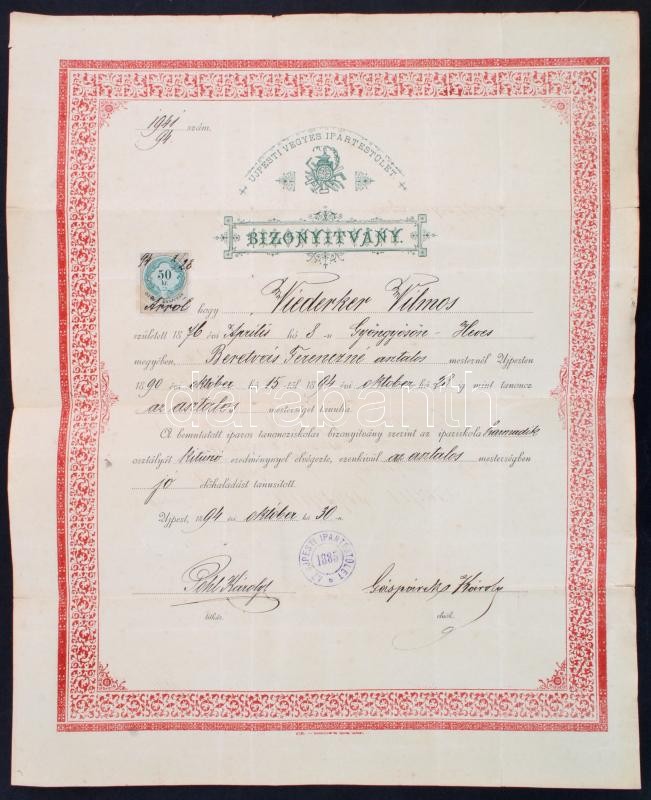 1941/94 szám.
UJPESTI VEGYES IPARTESTÜLET.
BIZONYITVÁNY.
50
Arról hogy Niederker Vilmos
született 1876 évi Április hó 8-n Gyöngyösön - Heves
megyében, Beretvás Ferenczné asztalos mesternél Ujpesten
1890 évi október hó 15-től 1894 évi oktober hó 28-ig mint tanoncz
az asztalos mesterséget tanulta.
A bemutatott iparos tanoncziskolai bizonyitvány szerint az ipariskola harmadik
osztályát kitünő eredménynyel elvégezte, ezenkivül az asztalos mesterségben
jó előhaladást tanusitott.
Ujpest, 1894 évi október hó 30-n
AZ UJPESTI IPARTESTÜLET
1885
Pohl Károly Gáspárek Károly
titkár. elnök.
darabanth